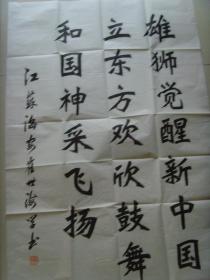 雄狮觉醒新中国
立东方欢欣鼓舞
和国神采飞扬
江蘇海安崔世海学书